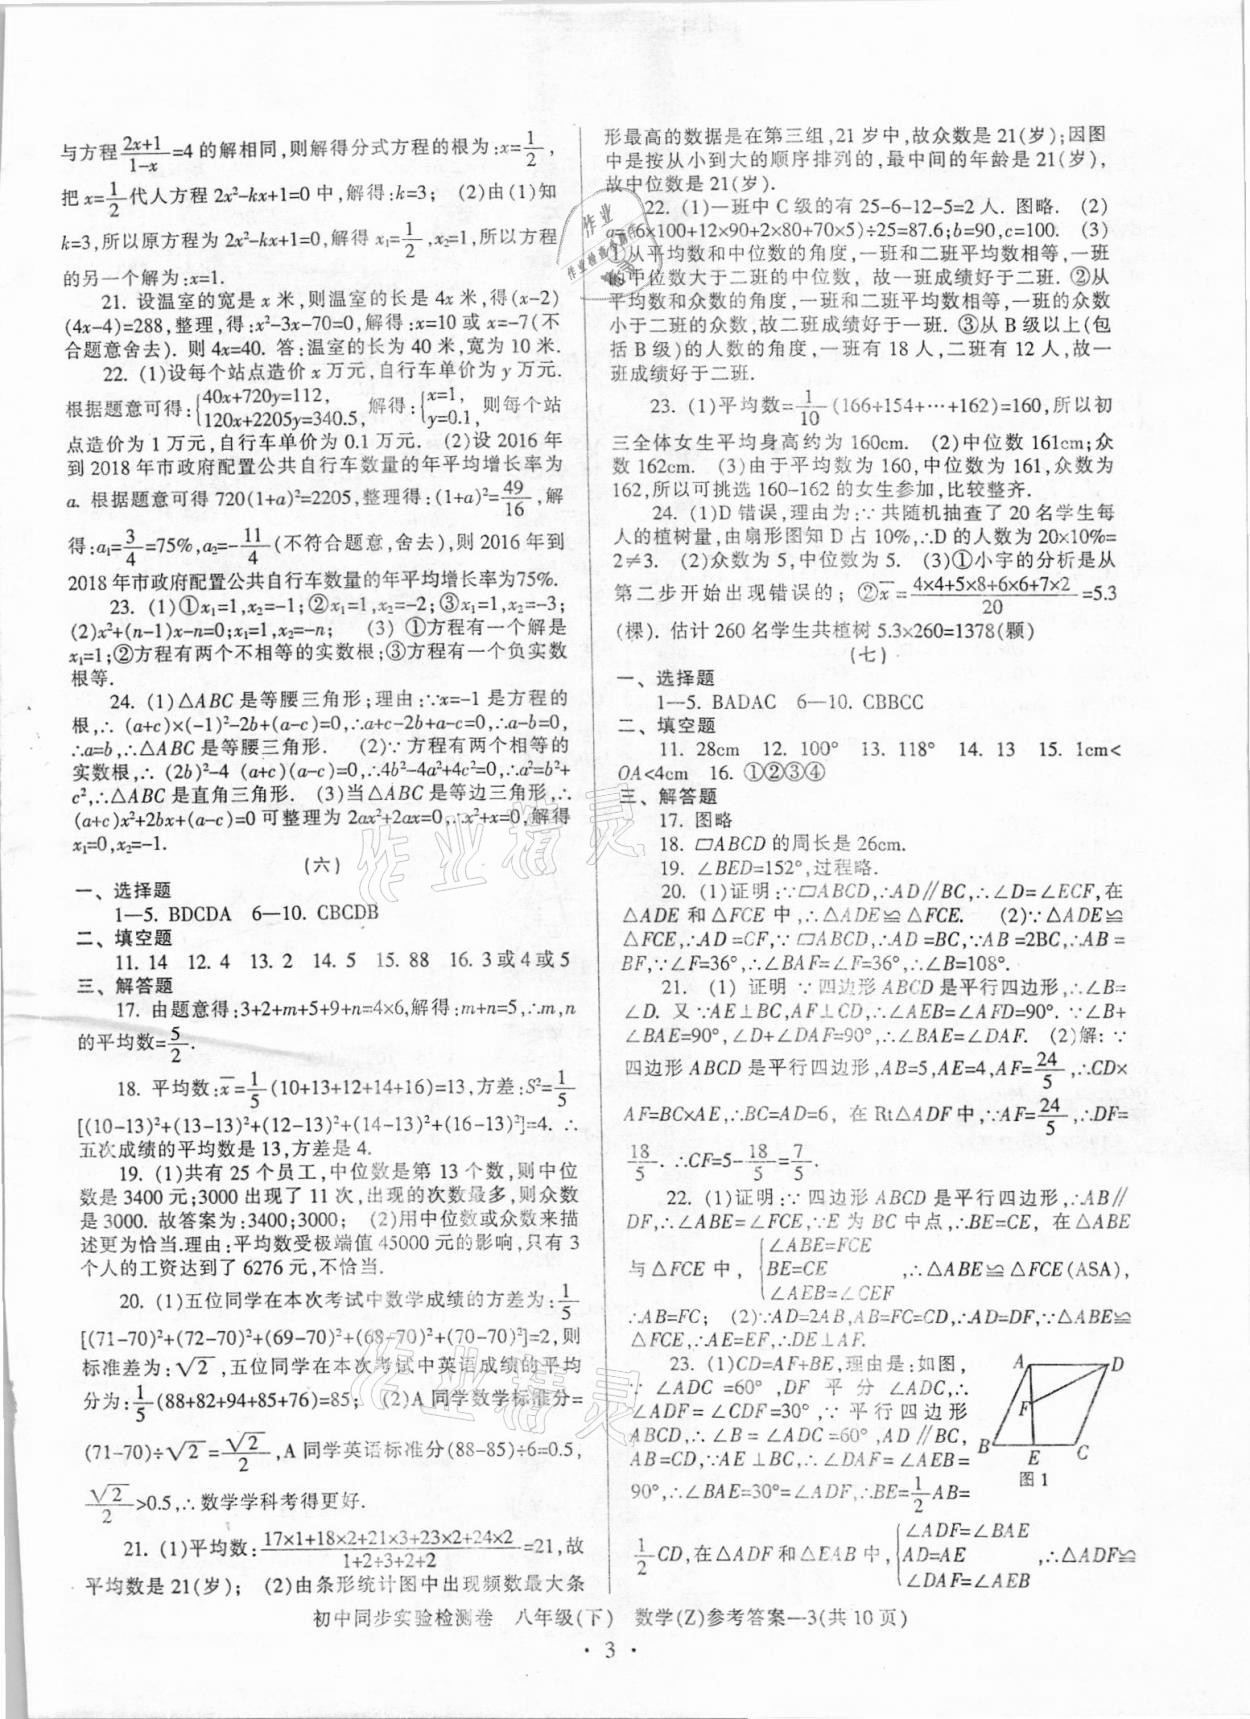 与方程(2x+1)/(1-x)=4的解相同,则解得分式方程的根为:x=1/2,
把x=1/2代人方程2x²-kx+1=0中,解得:k=3; (2)由(1)知
k=3,所以原方程为2x²-kx+1=0,解得x₁=1/2,x₂=1,所以方程
的另一个解为:x=1.
21. 设温室的宽是x米,则温室的长是4x米,得(x-2)
(4x-4)=288,整理,得:x²-3x-70=0,解得:x=10或x=-7(不
合题意舍去). 则4x=40. 答:温室的长为40米,宽为10米.
22. (1)设每个站点造价x万元,自行车单价为y万元.
根据题意可得:{40x+720y=112, 120x+2205y=340.5, 解得:{x=1, y=0.1, 则每个站
点造价为1万元,自行车单价为0.1万元. (2)设2016年
到2018年市政府配置公共自行车数量的年平均增长率为
a. 根据题意可得720(1+a)²=2205,整理得:(1+a)²=49/16,解
得:a₁=3/4=75%,a₂=-11/4(不符合题意,舍去),则2016年到
2018年市政府配置公共自行车数量的年平均增长率为75%.
23. (1)①x₁=1,x₂=-1;②x₁=1,x₂=-2;③x₁=1,x₂=-3;
(2)x²+(n-1)x-n=0;x₁=1,x₂=-n; (3) ①方程有一个解是
x₁=1;②方程有两个不相等的实数根;③方程有一个负实数
根等.
24. (1)△ABC是等腰三角形;理由:∵x=-1是方程的
根,∴(a+c)×(-1)²-2b+(a-c)=0,∴a+c-2b+a-c=0,∴a-b=0,
∴a=b,∴△ABC是等腰三角形. (2)∵方程有两个相等的
实数根,∴(2b)²-4 (a+c)(a-c)=0,∴4b²-4a²+4c²=0,∴a²=b²+
c²,∴△ABC是直角三角形. (3)当△ABC是等边三角形,∴
(a+c)x²+2bx+(a-c)=0可整理为2ax²+2ax=0,∴x²+x=0,解得
x₁=0,x₂=-1.
(六)
一、选择题
1—5. BDCDA 6—10. CBCDB
二、填空题
11. 14 12. 4 13. 2 14. 5 15. 88 16. 3或4或5
三、解答题
17. 由题意得:3+2+m+5+9+n=4×6,解得:m+n=5,∴m,n
的平均数=5/2.
18. 平均数:x̄=1/5(10+13+12+14+16)=13,方差:S²=1/5
[(10-13)²+(13-13)²+(12-13)²+(14-13)²+(16-13)²]=4. ∴
五次成绩的平均数是13,方差是4.
19. (1)共有25个员工,中位数是第13个数,则中位
数是3400元;3000出现了11次,出现的次数最多,则众数
是3000. 故答案为:3400;3000; (2)用中位数或众数来描
述更为恰当.理由:平均数受极端值45000元的影响,只有3
个人的工资达到了6276元,不恰当.
20. (1)五位同学在本次考试中数学成绩的方差为:1/5
[(71-70)²+(72-70)²+(69-70)²+(68-70)²+(70-70)²]=2,则
标准差为:√2,五位同学在本次考试中英语成绩的平均
分为:1/5(88+82+94+85+76)=85; (2)A同学数学标准分=
(71-70)÷√2=√2/2,A同学英语标准分(88-85)÷6=0.5,
√2/2>0.5,∴数学学科考得更好.
21. (1)平均数:(17×1+18×2+21×3+23×2+24×2)/(1+2+3+2+2)=21,故
平均数是21(岁); (2)由条形统计图中出现频数最大条
形最高的数据是在第三组,21岁中,故众数是21(岁);因图
中是按从小到大的顺序排列的,最中间的年龄是21(岁),
故中位数是21(岁).
22. (1)一班中C级的有25-6-12-5=2人. 图略. (2)
a=(6×100+12×90+2×80+70×5)÷25=87.6;b=90,c=100. (3)
①从平均数和中位数的角度,一班和二班平均数相等,一班
的中位数大于二班的中位数, 故一班成绩好于二班. ②从
平均数和众数的角度,一班和二班平均数相等,一班的众数
小于二班的众数,故二班成绩好于一班. ③从B级以上(包
括B级)的人数的角度,一班有18人,二班有12人,故一
班成绩好于二班.
23. (1)平均数=1/10(166+154+…+162)=160,所以初
三全体女生平均身高约为160cm. (2)中位数161cm;众
数162cm. (3)由于平均数为160,中位数为161,众数为
162,所以可挑选160-162的女生参加,比较整齐.
24. (1)D错误,理由为:∵共随机抽查了20名学生每
人的植树量,由扇形图知D占10%,∴D的人数为20×10%=
2≠3. (2)众数为5,中位数为5. (3)①小宇的分析是从
第二步开始出现错误的; ②x̄=(4×4+5×8+6×6+7×2)/20=5.3
(棵). 估计260名学生共植树5.3×260=1378(颗)
(七)
一、选择题
1—5. BADAC 6—10. CBBCC
二、填空题
11. 28cm 12. 100° 13. 118° 14. 13 15. 1cm<
OA<4cm 16. ①②③④
三、解答题
17. 图略
18. ▱ABCD的周长是26cm.
19. ∠BED=152°,过程略.
20. (1)证明:∵▱ABCD,∴AD∥BC,∴∠D=∠ECF,在
△ADE和△FCE中,∴△ADE≌△FCE. (2)∵△ADE≌
△FCE,∴AD=CF,∵▱ABCD,∴AD=BC,∵AB=2BC,∴AB=
BF,∵∠F=36°,∴∠BAF=∠F=36°,∴∠B=108°.
21. (1) 证明 ∵四边形ABCD是平行四边形,∴∠B=
∠D. 又∵AE⊥BC,AF⊥CD,∴∠AEB=∠AFD=90°. ∵∠B+
∠BAE=90°,∠D+∠DAF=90°,∴∠BAE=∠DAF. (2)解: ∵
四边形ABCD是平行四边形,AB=5,AE=4,AF=24/5,∴CD×
AF=BC×AE,∴BC=AD=6, 在Rt△ADF中,∵AF=24/5,∴DF=
18/5. ∴CF=5-18/5=7/5.
22. (1)证明:∵四边形ABCD是平行四边形,∴AB∥
DF,∴∠ABE=∠FCE,∵E为BC中点,∴BE=CE, 在△ABE
与△FCE中, {∠ABE=FCE BE=CE ∠AEB=∠CEF ,∴△ABE≌△FCE(ASA),
∴AB=FC; (2)∵AD=2AB,AB=FC=CD,∴AD=DF,∵△ABE≌
△FCE,∴AE=EF,∴DE⊥AF.
23. (1)CD=AF+BE,理由是:如图,
∵∠ADC=60°,DF平分∠ADC,∴
∠ADF=∠CDF=30°,∵平行四边形
ABCD,∴∠B=∠ADC=60°,AD∥BC,
AB=CD,∵AE⊥BC,∴∠DAF=∠AEB=
90°,∴∠BAE=30°=∠ADF,∴BE=1/2AB=
1/2CD,在△ADF和△EAB中,{∠ADF=∠BAE AD=AE ∠DAF=∠AEB ,∴△ADF≌
A D F B E C
图1
初中同步实验检测卷 八年级(下) 数学(Z)参考答案—3(共10页)
· 3 ·
作业精灵
作业精灵